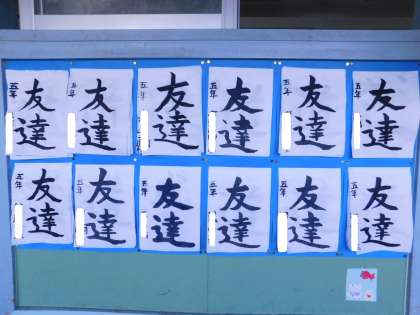 友達
五年
友達
五年
友達
五年
友達
五年
友達
五年
友達
五年
友達
五年
友達
五年
友達
五年
友達
五年
友達
五年
友達
五年